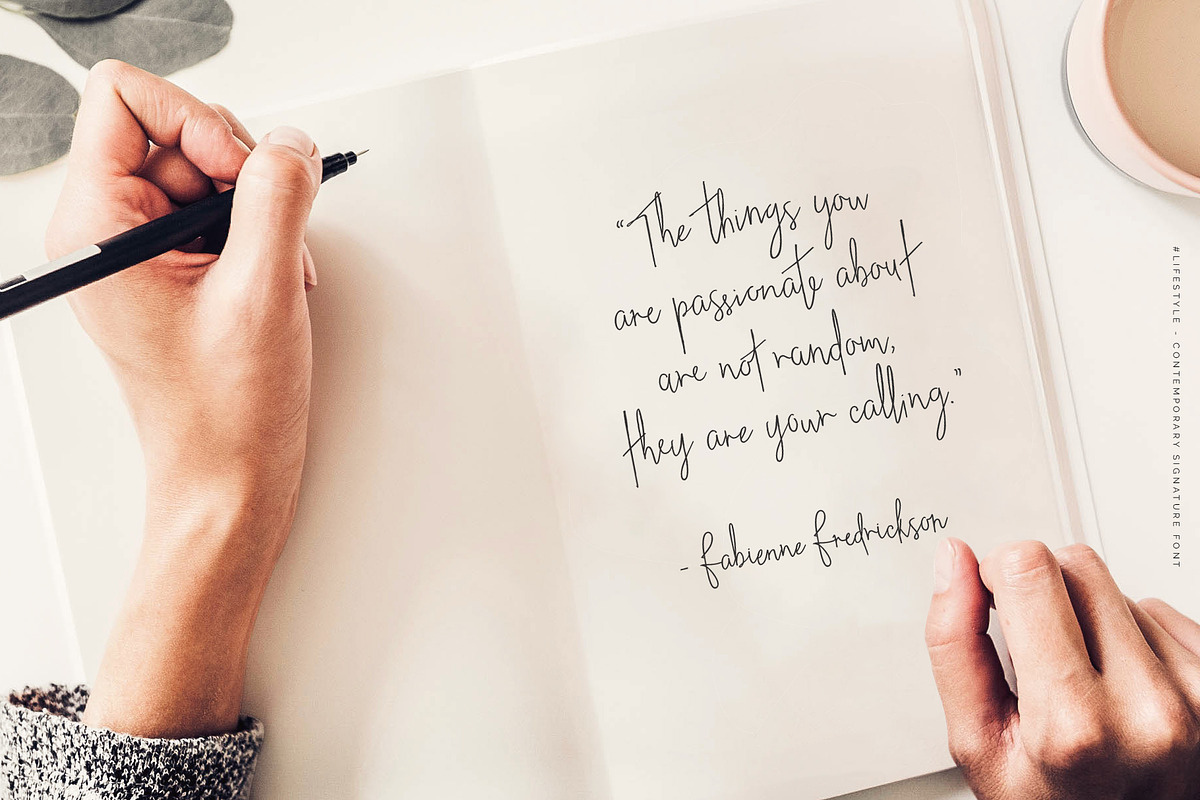 “The things you
are passionate about
are not random,
they are your calling.”
- Fabienne Fredrickson
#LIFESTYLE - CONTEMPORARY SIGNATURE FONT